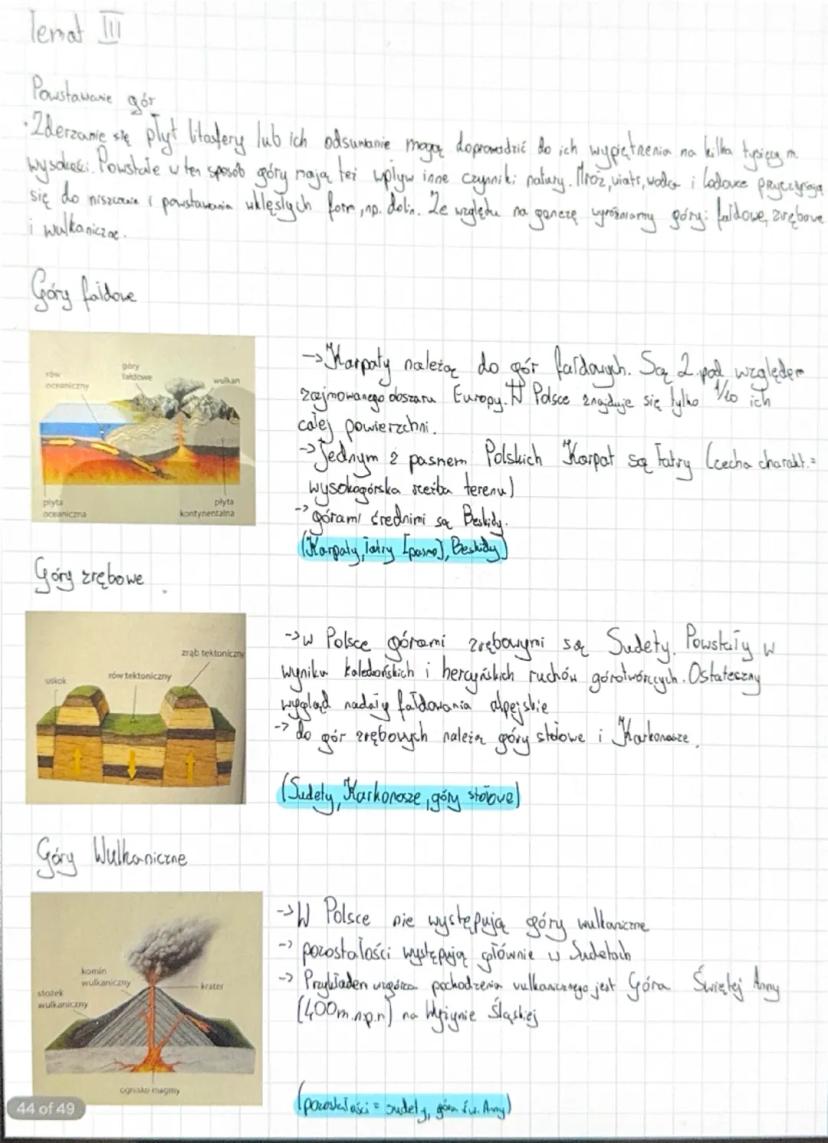 Temat III
Powstawanie gór
· Zderzanie się płyt litosfery lub ich odsuwanie mogą doprowadzić do ich wypiętrzenia na kilka tysięcy m
wysokości. Powstałe w ten sposób góry mają też wpływ inne czynniki natury. Mróz, wiatr, woda i lodowce przyczyniają
się do niszczenia i powstawania wklęsłych form, np. dolin. Ze względu na genezę wyróżniamy góry: fałdowe, zrębowe
i wulkaniczne.
Góry fałdowe
rów
oceaniczny
góry
fałdowe
wulkan
płyta
oceaniczna
płyta
kontynentalna
-> Karpaty należą do gór fałdowych. Są 2. pod względem
zajmowanego obszaru Europy. W Polsce znajduje się tylko 1/10 ich
całej powierzchni.
-> Jednym z pasmem Polskich Karpat są Tatry (cecha charakt.=
wysokogórska rzeźba terenu)
-> górami średnimi są Beskidy.
(Karpaty, Tatry [pasmo], Beskidy)
Góry zrębowe
uskok
rów tektoniczny
zrąb tektoniczny
-> w Polsce górami zrębowymi są Sudety. Powstały w
wyniku kaledońskich i hercyńskich ruchów górotwórczych. Ostateczny
wygląd nadały fałdowania alpejskie
-> do gór zrębowych należą góry stołowe i Karkonosze.
(Sudety, Karkonosze, góry stołowe)
Góry Wulkaniczne
komin
wulkaniczny
stożek
wulkaniczny
krater
ognisko magmy
-> W Polsce nie występują góry wulkaniczne
-> pozostałości występują głównie w Sudetach
-> Przykładem wzgórza pochodzenia wulkanicznego jest Góra Świętej Anny
(400m.n.p.m) na Wyżynie Śląskiej
(pozostałości = sudety, góra św. Anny)
44 of 49